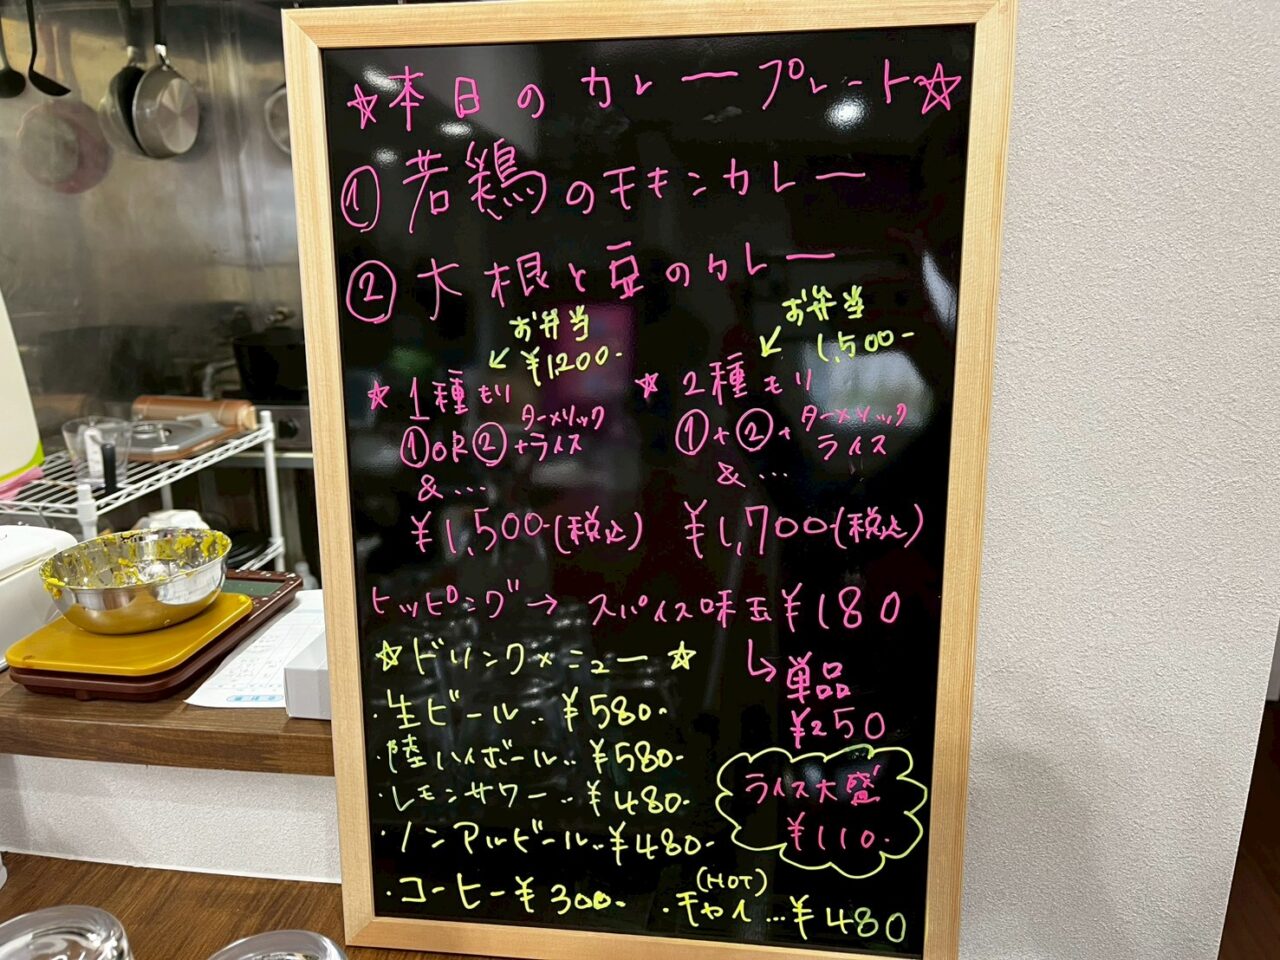 ☆本日のカレープレート☆
①若鶏のチキンカレー
②大根と豆のカレー
お弁当
¥1200-
お弁当
1,500-
☆1種もり
①OR②+ターメリックライス
&...
¥1,500-(税込)
☆2種もり
①+②+ターメリックライス
&...
¥1,700-(税込)
トッピング→スパイス味玉¥180
↳単品
¥250
☆ドリンクメニュー☆
・生ビール..¥580-
・陸ハイボール..¥580-
・レモンサワー..¥480-
・ノンアルビール..¥480-
・コーヒー¥300-
・チャイ(HOT)...¥480
ライス大盛
¥110-